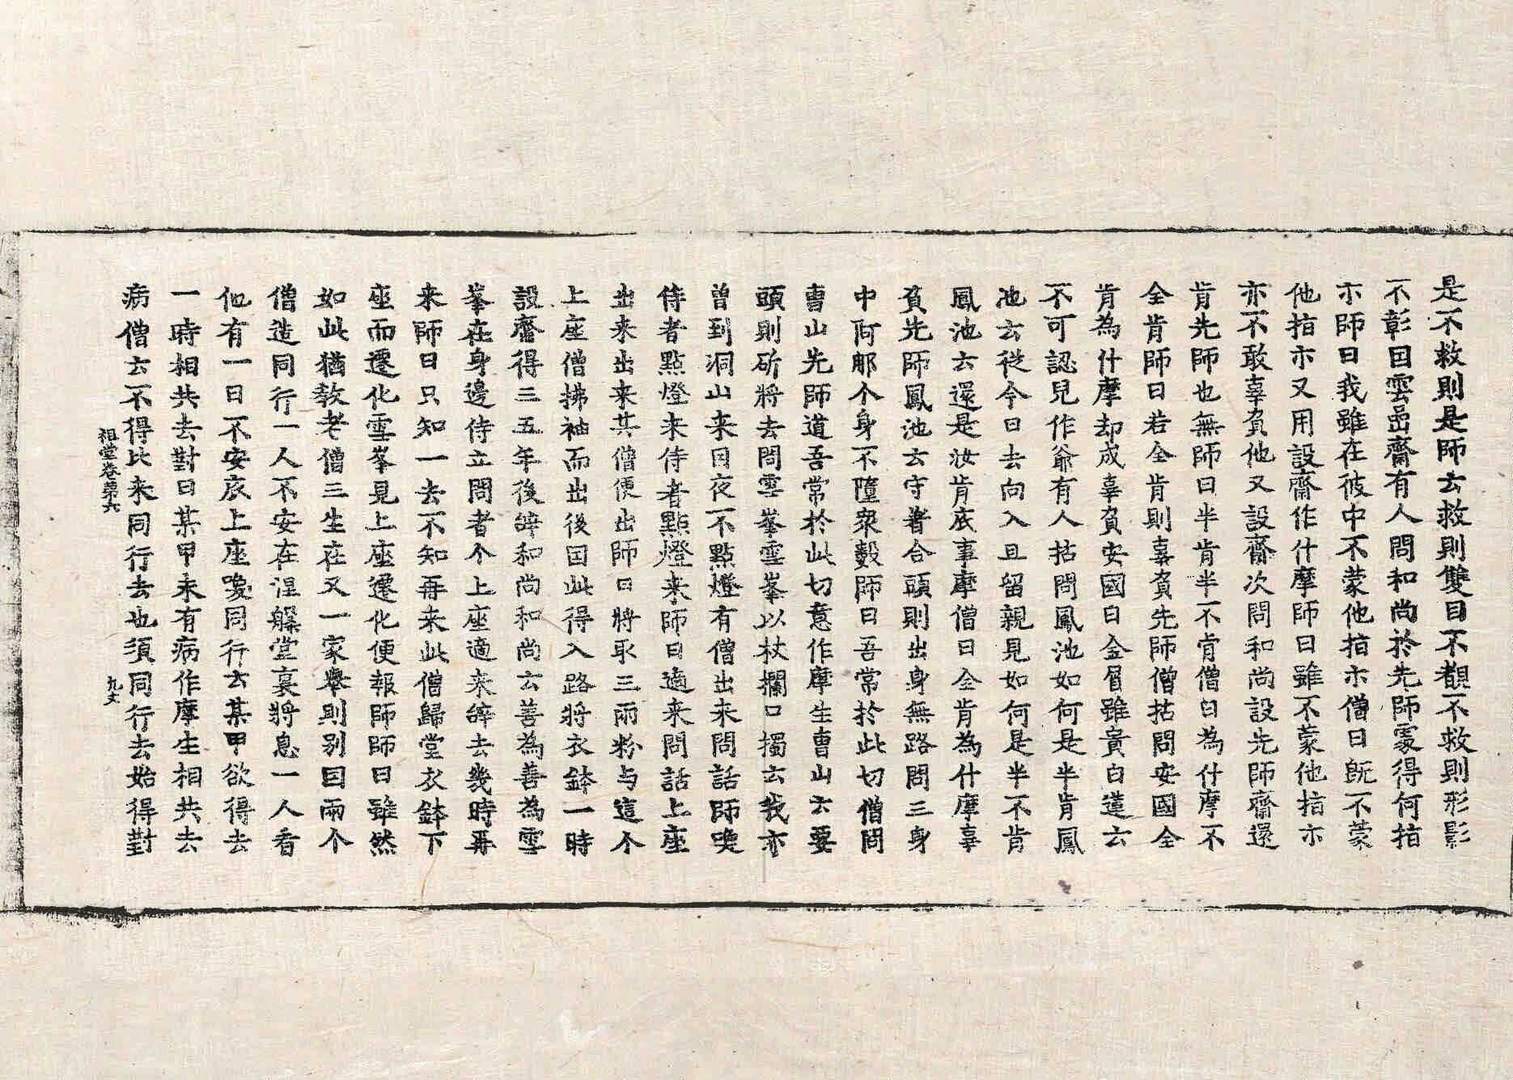 是不救則是師云救則雙目不覩不救則形影
不彰因雲嵒齋有人問和尚於先師處得何指
示師曰我雖在彼中不蒙他指示僧曰既不蒙
他指示又用設齋作什摩師曰雖不蒙他指示
亦不敢辜負他又設齋次問和尚設先師齋還
肯先師也無師曰半肯半不肯僧曰為什摩不
全肯師曰若全肯則辜負先師僧拈問安國全
肯為什摩却成辜負安國曰金屑雖貴白蓮云
不可認兒作爺有人拈問鳳池如何是半肯鳳
池云從今日去向入且留親見如何是半不肯
鳳池云還是汝肯底事摩僧曰全肯為什摩辜
負先師鳳池云守著合頭則出身無路問三身
中阿那个身不墮衆數師曰吾常於此切僧問
曹山先師道吾常於此切意作摩生曹山云要
頭則斫將去問雪峯雪峯以杖攔口摑云我亦
曾到洞山来因夜不點燈有僧出来問話師喚
侍者點燈来侍者點燈来師曰適来問話上座
出来出来其僧便出師曰將取三兩粉与這个
上座僧拂袖而出後因此得入路將衣鉢一時
設齋得三五年後辞和尚和尚云善為善為雪
峯在身邊侍立問者个上座適来辞去幾時再
来師曰只知一去不知再来此僧歸堂衣鉢下
座而遷化雪峯見上座遷化便報師師曰雖然
如此猶教老僧三生在又一家舉則別因兩个
僧造同行一人不安在涅槃堂裏將息一人看
他有一日不安底上座喚同行云某甲欲得去
一時相共去對曰某甲未有病作摩生相共去
病僧云不得比来同行去也須同行去始得對
祖堂卷第六
九丈